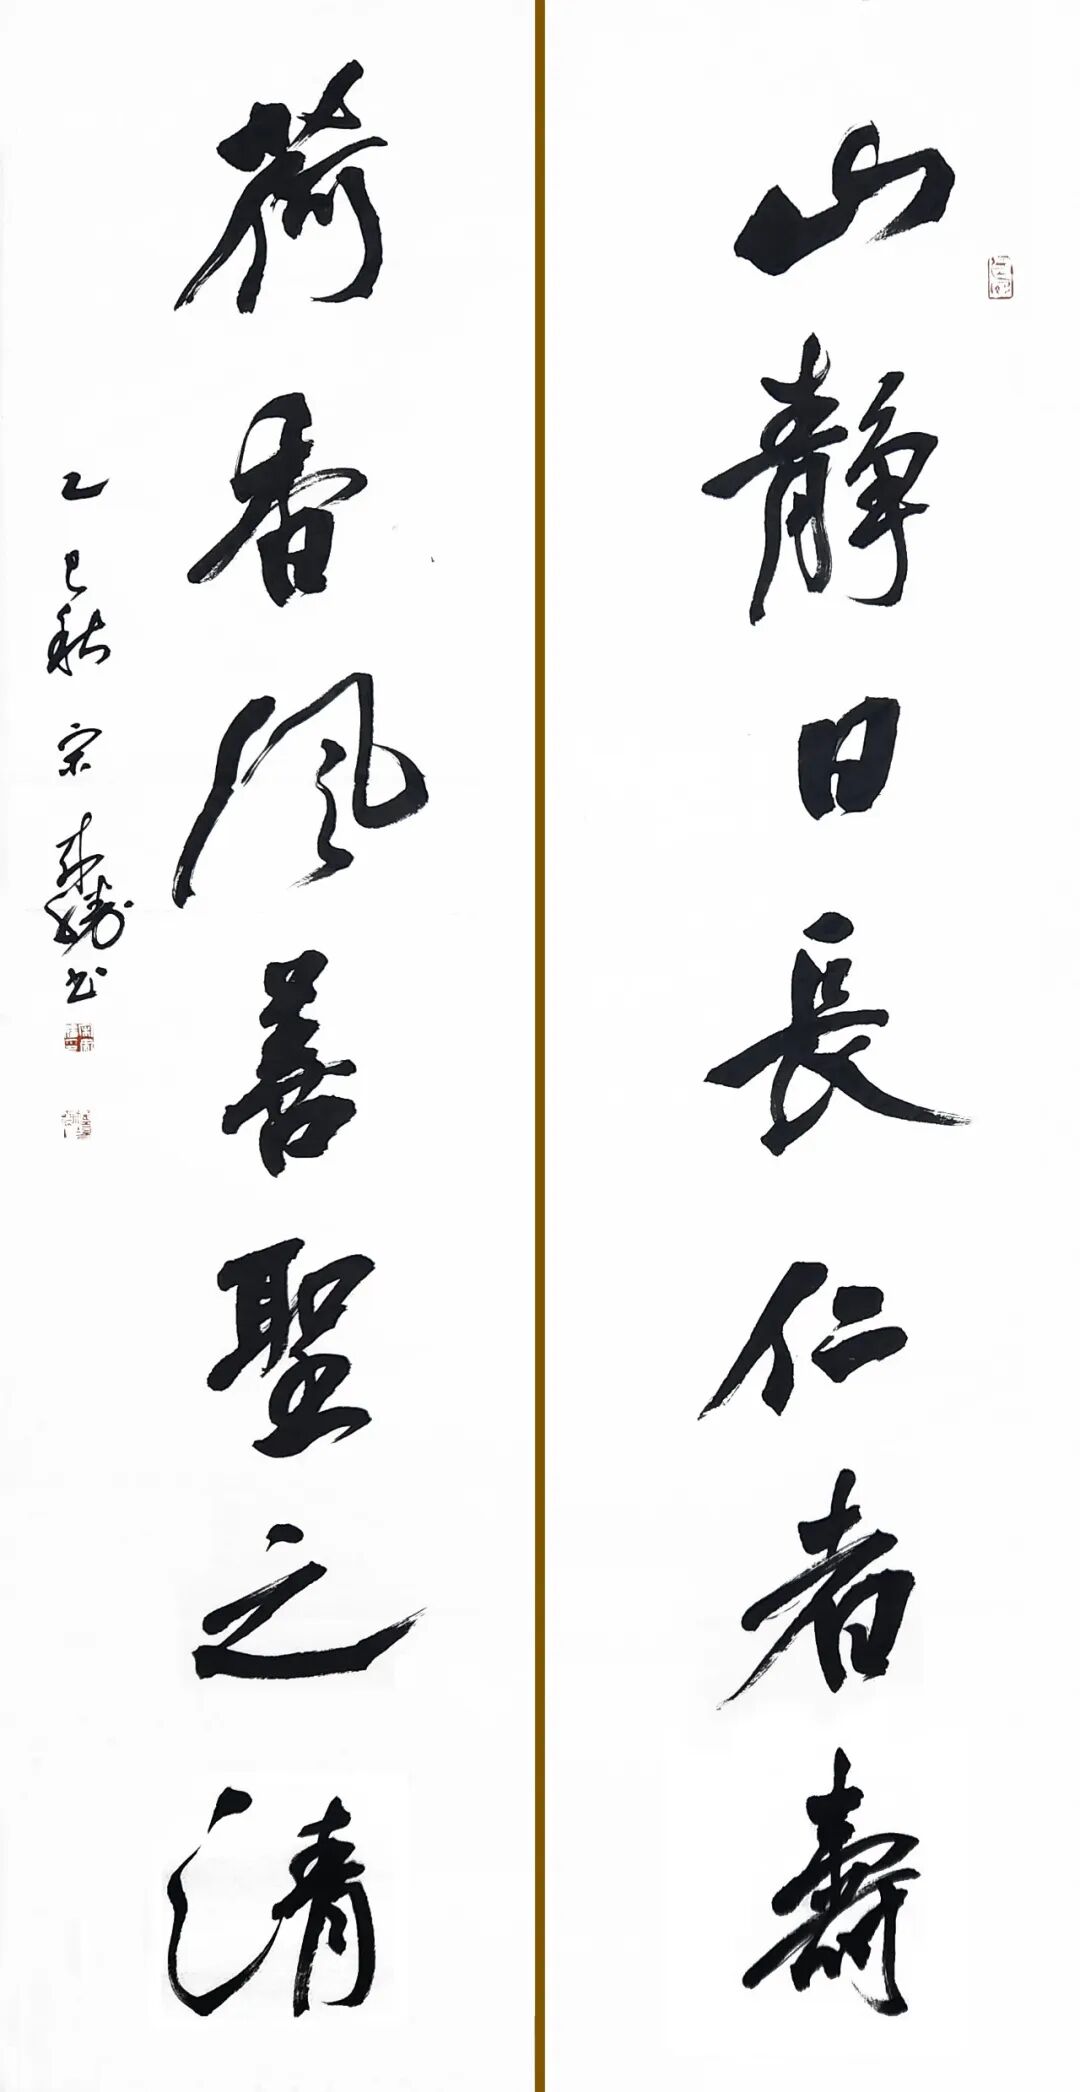 山静日長仁者壽
荷香风善聖之清
乙巳秋宋
书